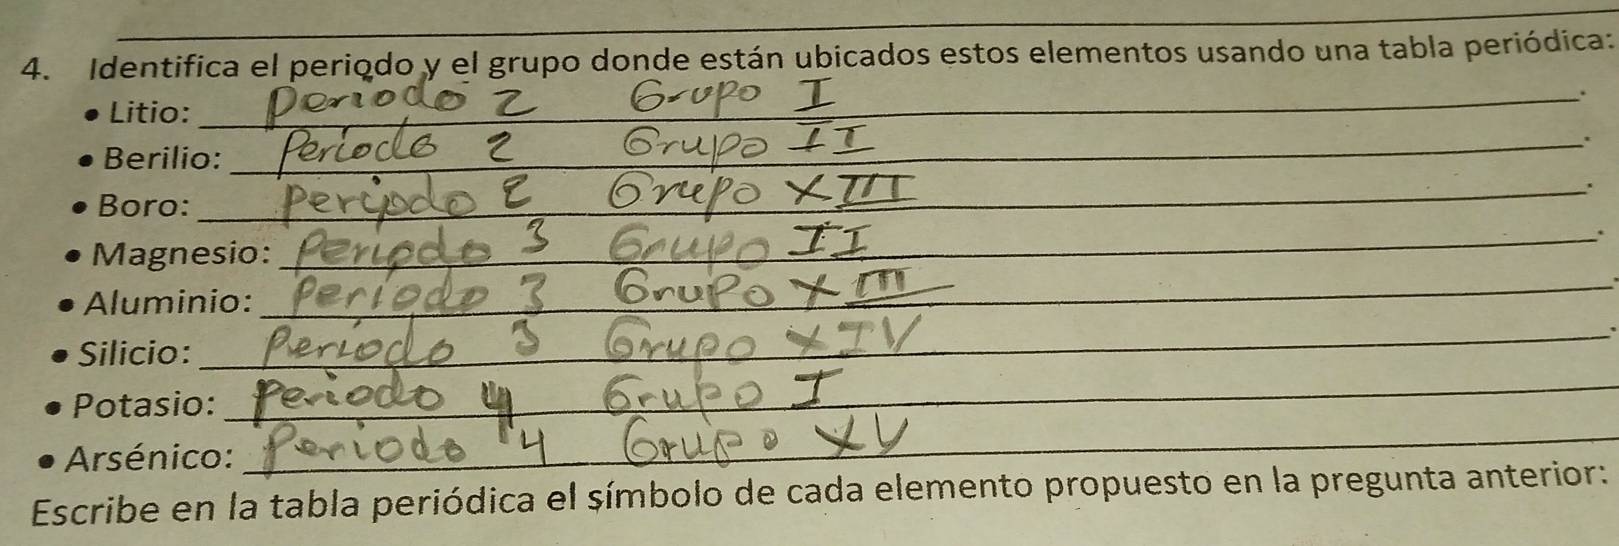 4. Identifica el periodo y el grupo donde están ubicados estos elementos usando una tabla periódica:
• Litio: Periodo 2 Grupo I.
• Berilio: Periodo 2 Grupo II.
• Boro: Periodo 2 Grupo XIII.
• Magnesio: Periodo 3 Grupo II.
• Aluminio: Periodo 3 Grupo XIII.
• Silicio: Periodo 3 Grupo XIV.
• Potasio: Periodo 4 Grupo I
• Arsénico: Periodo 4 Grupo XV
Escribe en la tabla periódica el símbolo de cada elemento propuesto en la pregunta anterior: